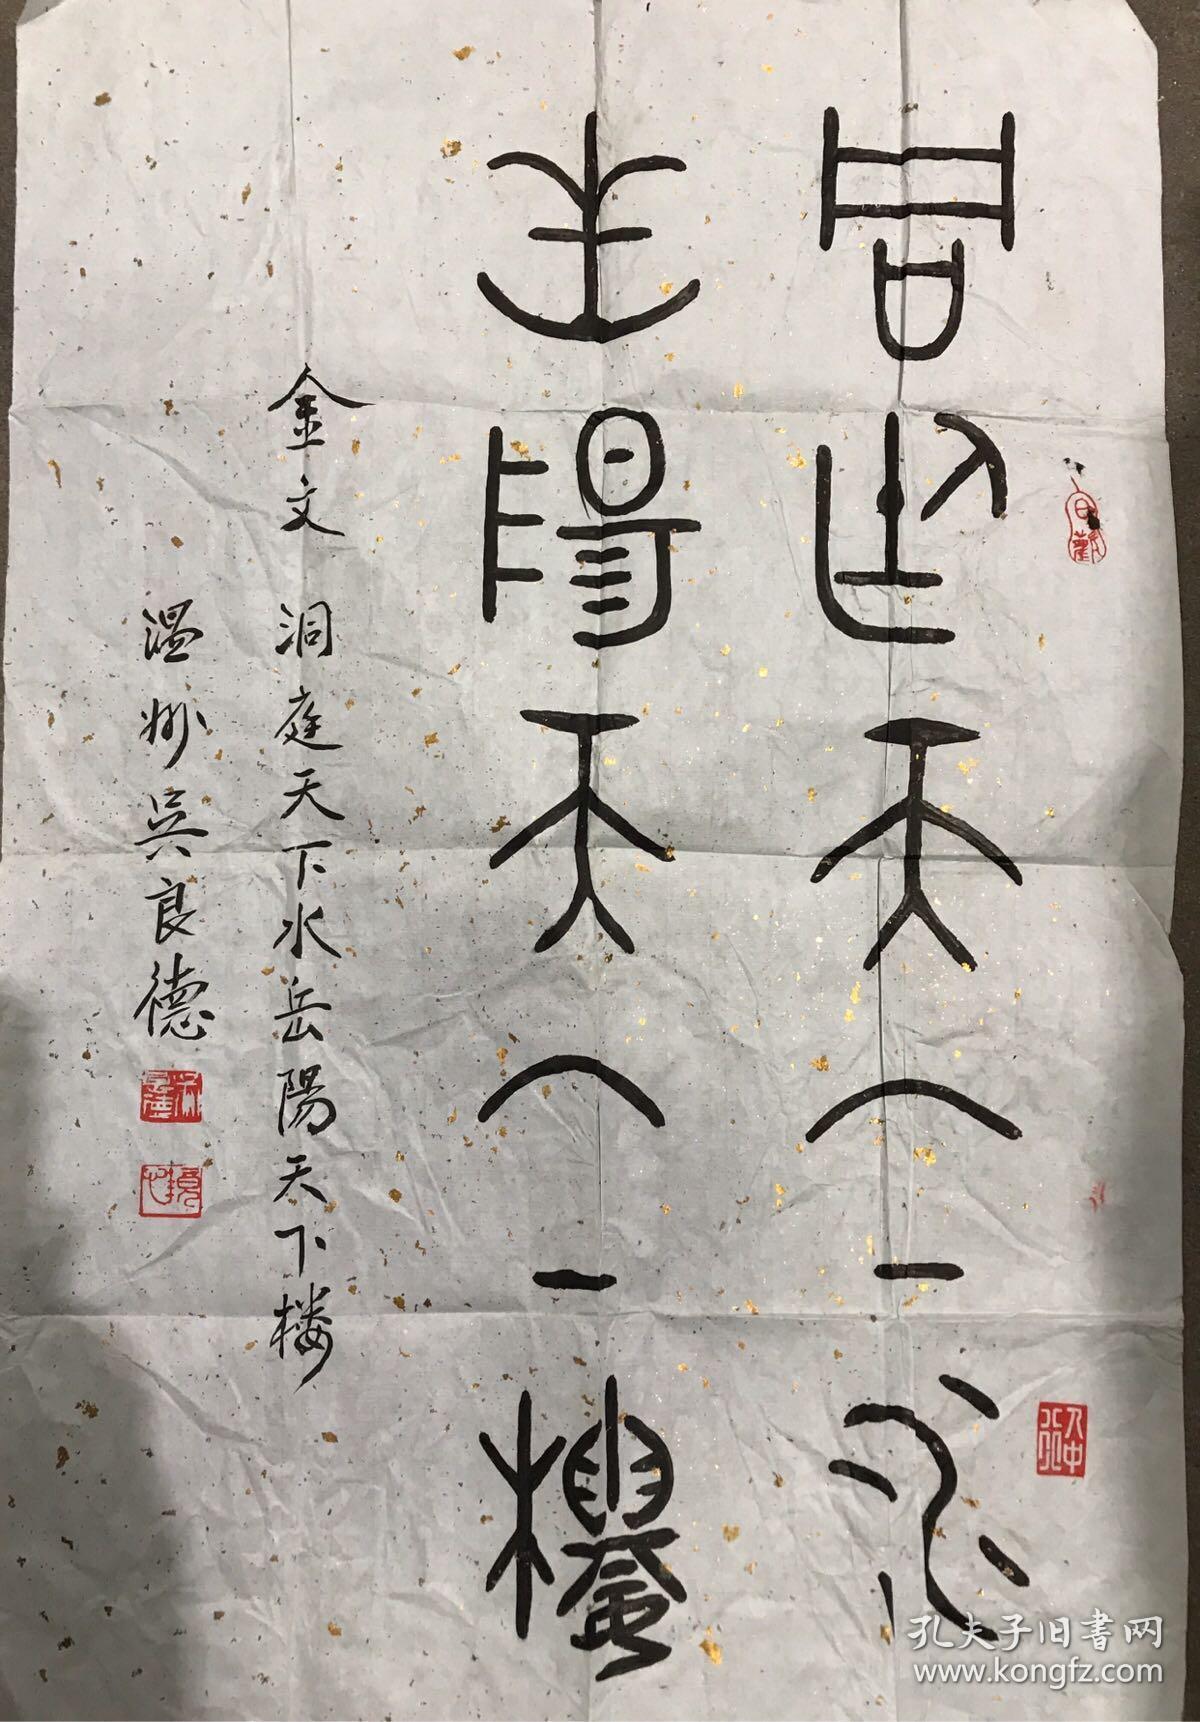 洞庭天下水
岳陽天下樓
金文 洞庭天下水岳陽天下楼
温州吳良德
孔夫子旧書网
www.kongfz.com